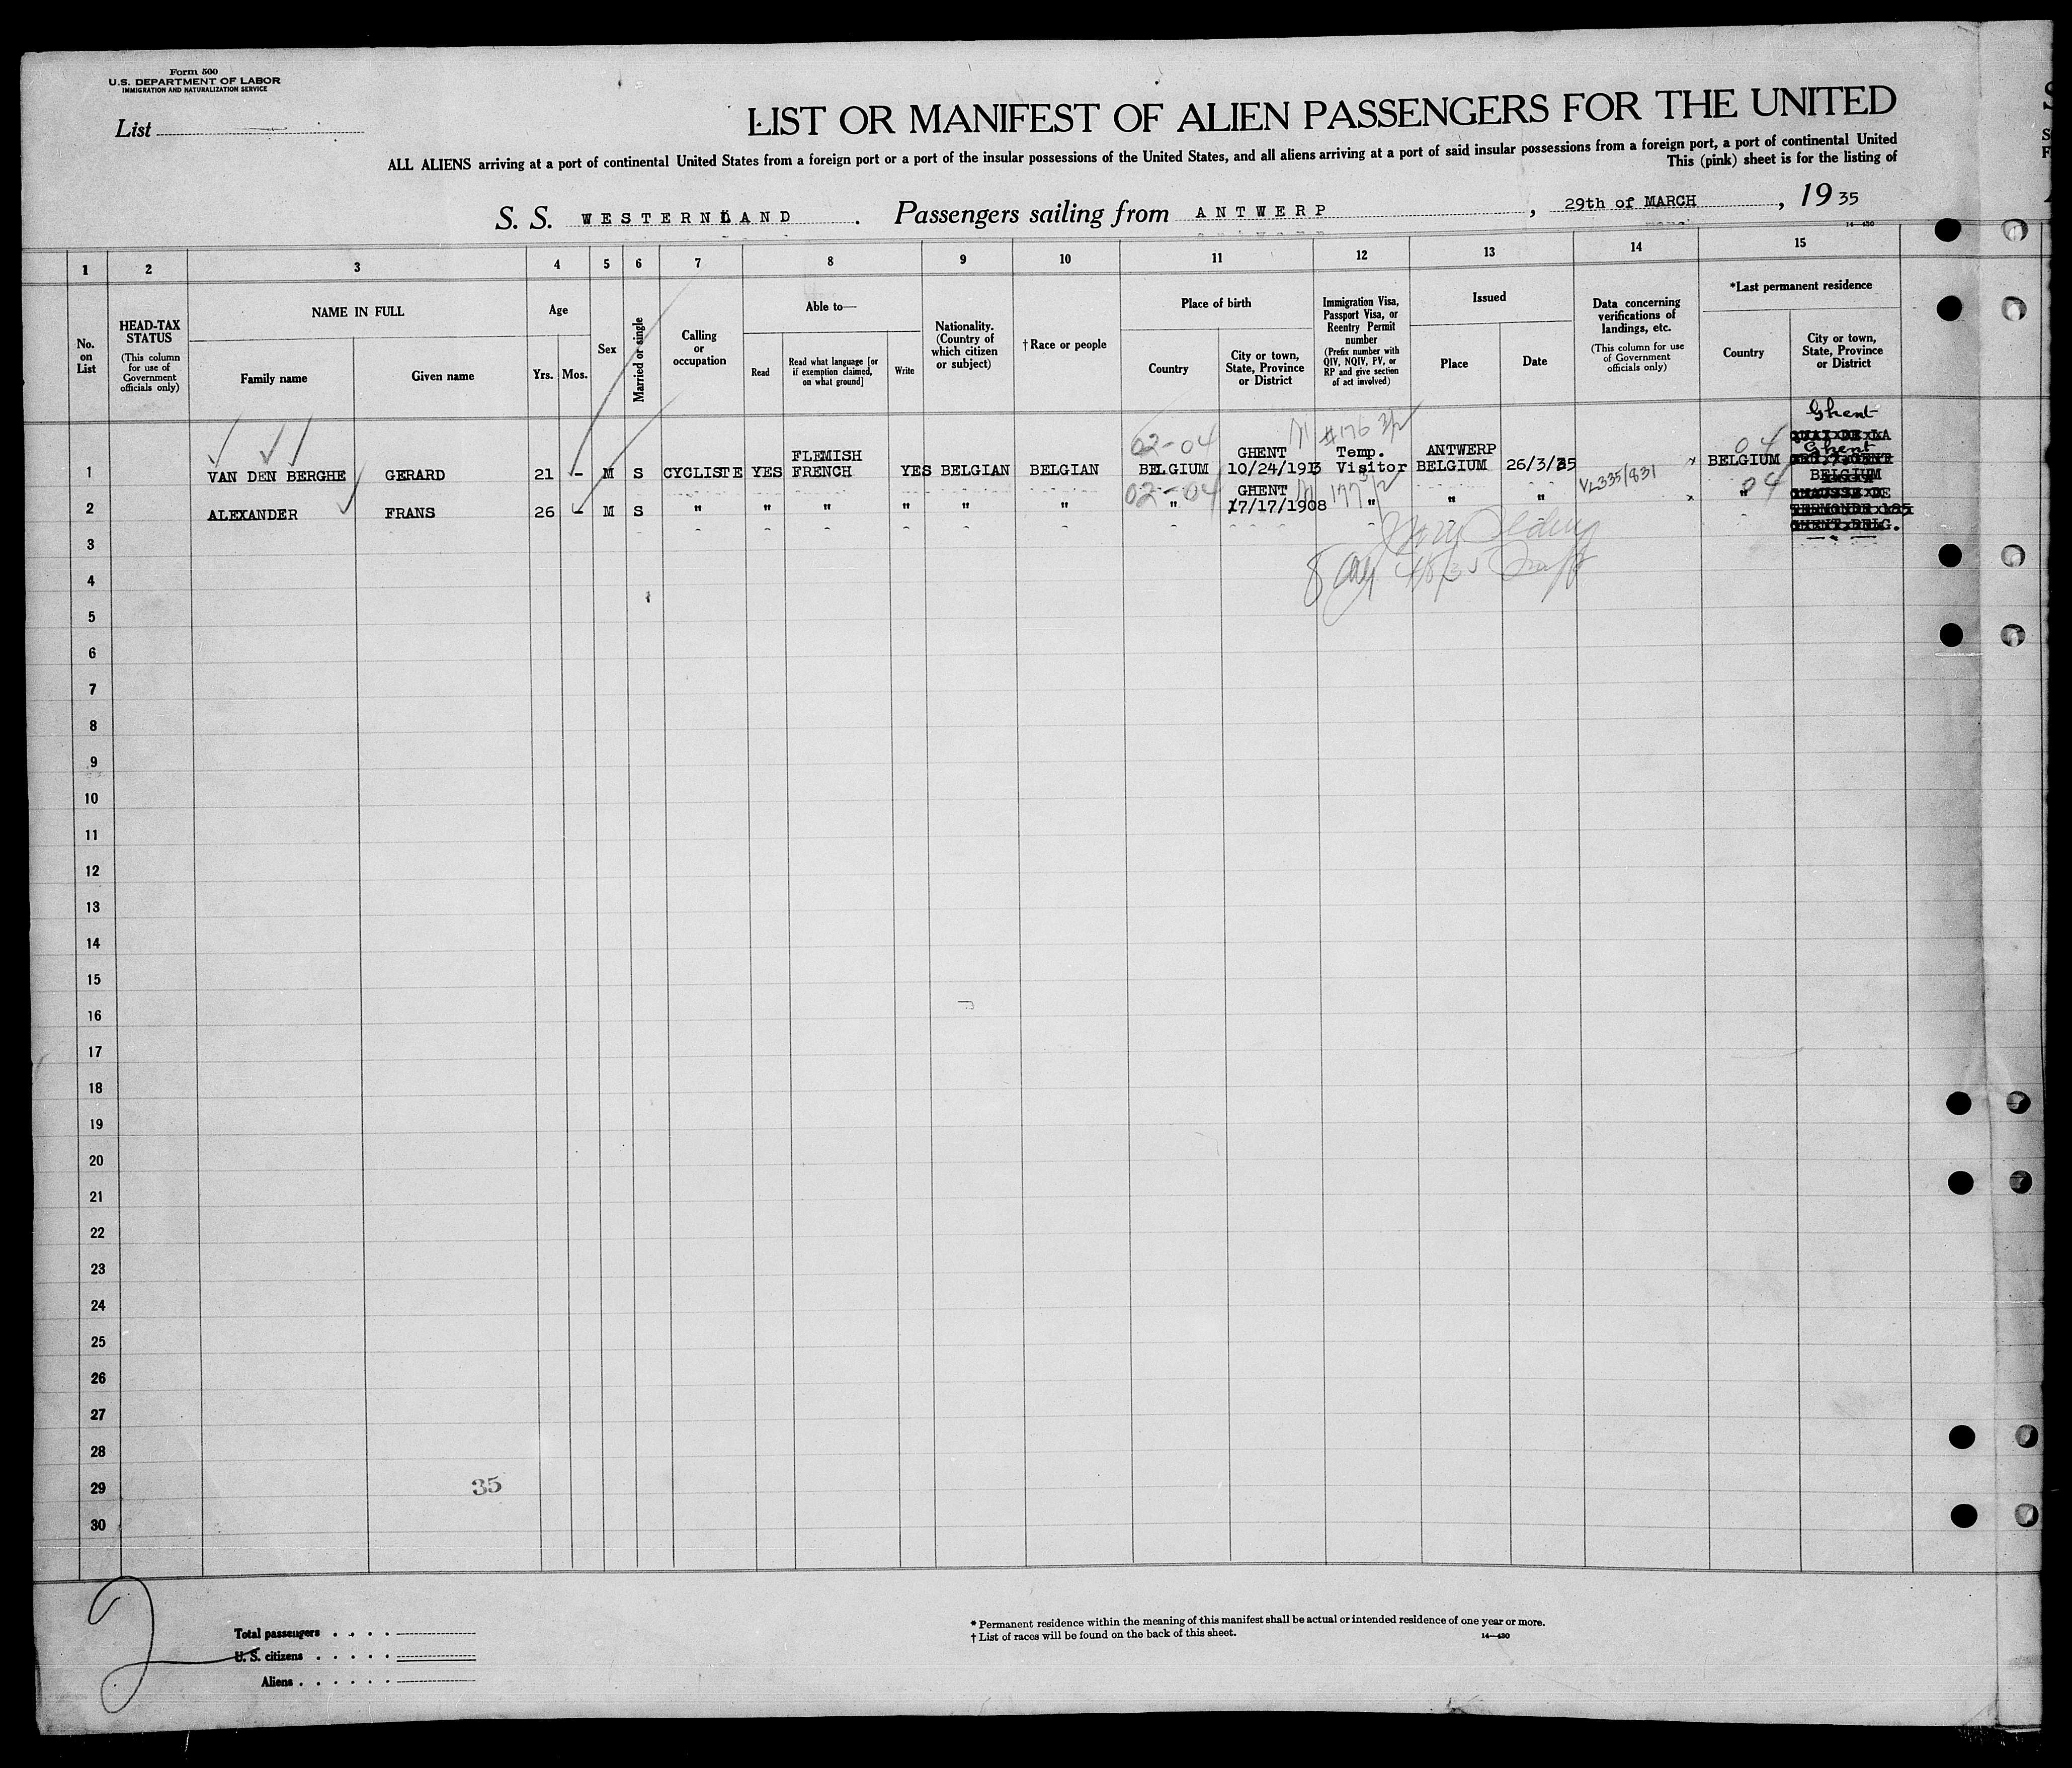 Form 500
U.S. DEPARTMENT OF LABOR
IMMIGRATION AND NATURALIZATION SERVICE
List
LIST OR MANIFEST OF ALIEN PASSENGERS FOR THE UNITED
ALL ALIENS arriving at a port of continental United States from a foreign port or a port of the insular possessions of the United States, and all aliens arriving at a port of said insular possessions from a foreign port, a port of continental United
This (pink) sheet is for the listing of
S. S. WESTERNLAND. Passengers sailing from ANTWERP, 29th of MARCH, 1935
14—430
1 2 3 4 5 6 7 8 9 10 11 12 13 14 15
No. on List
HEAD-TAX STATUS
(This column for use of Government officials only)
NAME IN FULL
Family name
Given name
Age
Yrs.
Mos.
Sex
Married or single
Calling or occupation
Able to—
Read
Read what language [or if exemption claimed, on what ground]
Write
Nationality. (Country of which citizen or subject)
†Race or people
Place of birth
Country
City or town, State, Province or District
Immigration Visa, Passport Visa, or Reentry Permit number
(Prefix number with QIV, NQIV, PV, or RP and give section of act involved)
Issued
Place
Date
Data concerning verifications of landings, etc.
(This column for use of Government officials only)
*Last permanent residence
Country
City or town, State, Province or District
Ghent
02-04 #176 3/2 04
FLEMISH GHENT Temp. ANTWERP Ghent
1 VAN DEN BERGHE GERARD 21 - M S CYCLISTE YES FRENCH YES BELGIAN BELGIAN BELGIUM 10/24/1913 Visitor BELGIUM 26/3/35 BELGIUM
BELGIUM
VL335/831
02-04 GHENT 177 3/2 04
2 ALEXANDER FRANS 26 - M S " " " " " " " 7/17/1908 " " " "
3
8 4/8/35
4
5
6
7
8
9
10
11
12
13
14
15
16
17
18
19
20
21
22
23
24
25
26
27
28
29
35
30
2
Total passengers
U. S. citizens
Aliens
* Permanent residence within the meaning of this manifest shall be actual or intended residence of one year or more.
† List of races will be found on the back of this sheet.
14—430